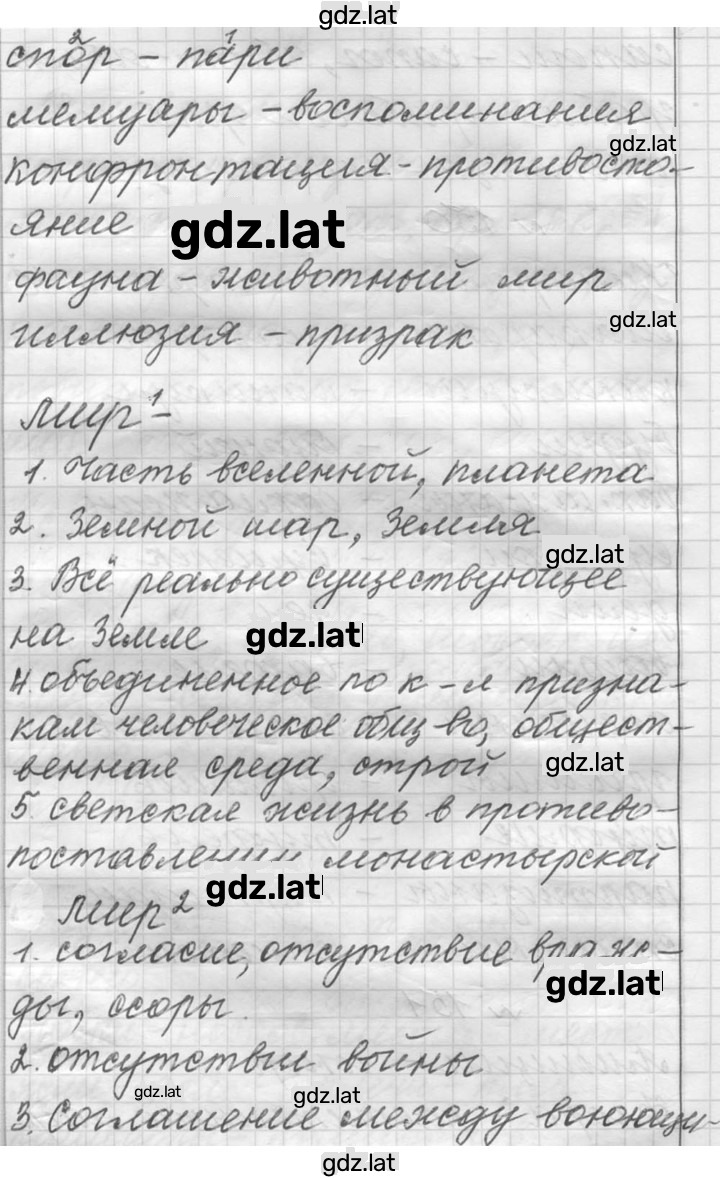 gdz.lat
спо²р – па¹ри
мемуары – воспоминания
gdz.lat
конфронтация – противосто-
яние
gdz.lat
фауна – животный мир
gdz.lat
иллюзия – призрак
мир¹ –
1. Часть вселенной, планета
2. Земной шар, Земля
gdz.lat
3. Всё реально существующее
на Земле
gdz.lat
4. объединенное по к-л призна-
кам человеческое общ-во, общест-
венная среда, строй
gdz.lat
5. светская жизнь в противо-
поставлении монастырской
gdz.lat
мир²
1. согласие, отсутствие враж-
gdz.lat
ды, ссоры.
2. отсутствии войны
gdz.lat
gdz.lat
3. Соглашение между воюющи-
gdz.lat